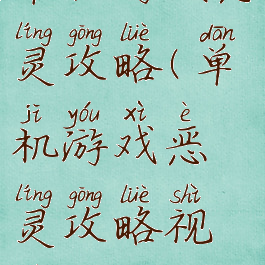 líng gōng lüè dān
灵攻略(单
jī yóu xì è
机游戏恶
líng gōng lüè shì
灵攻略视